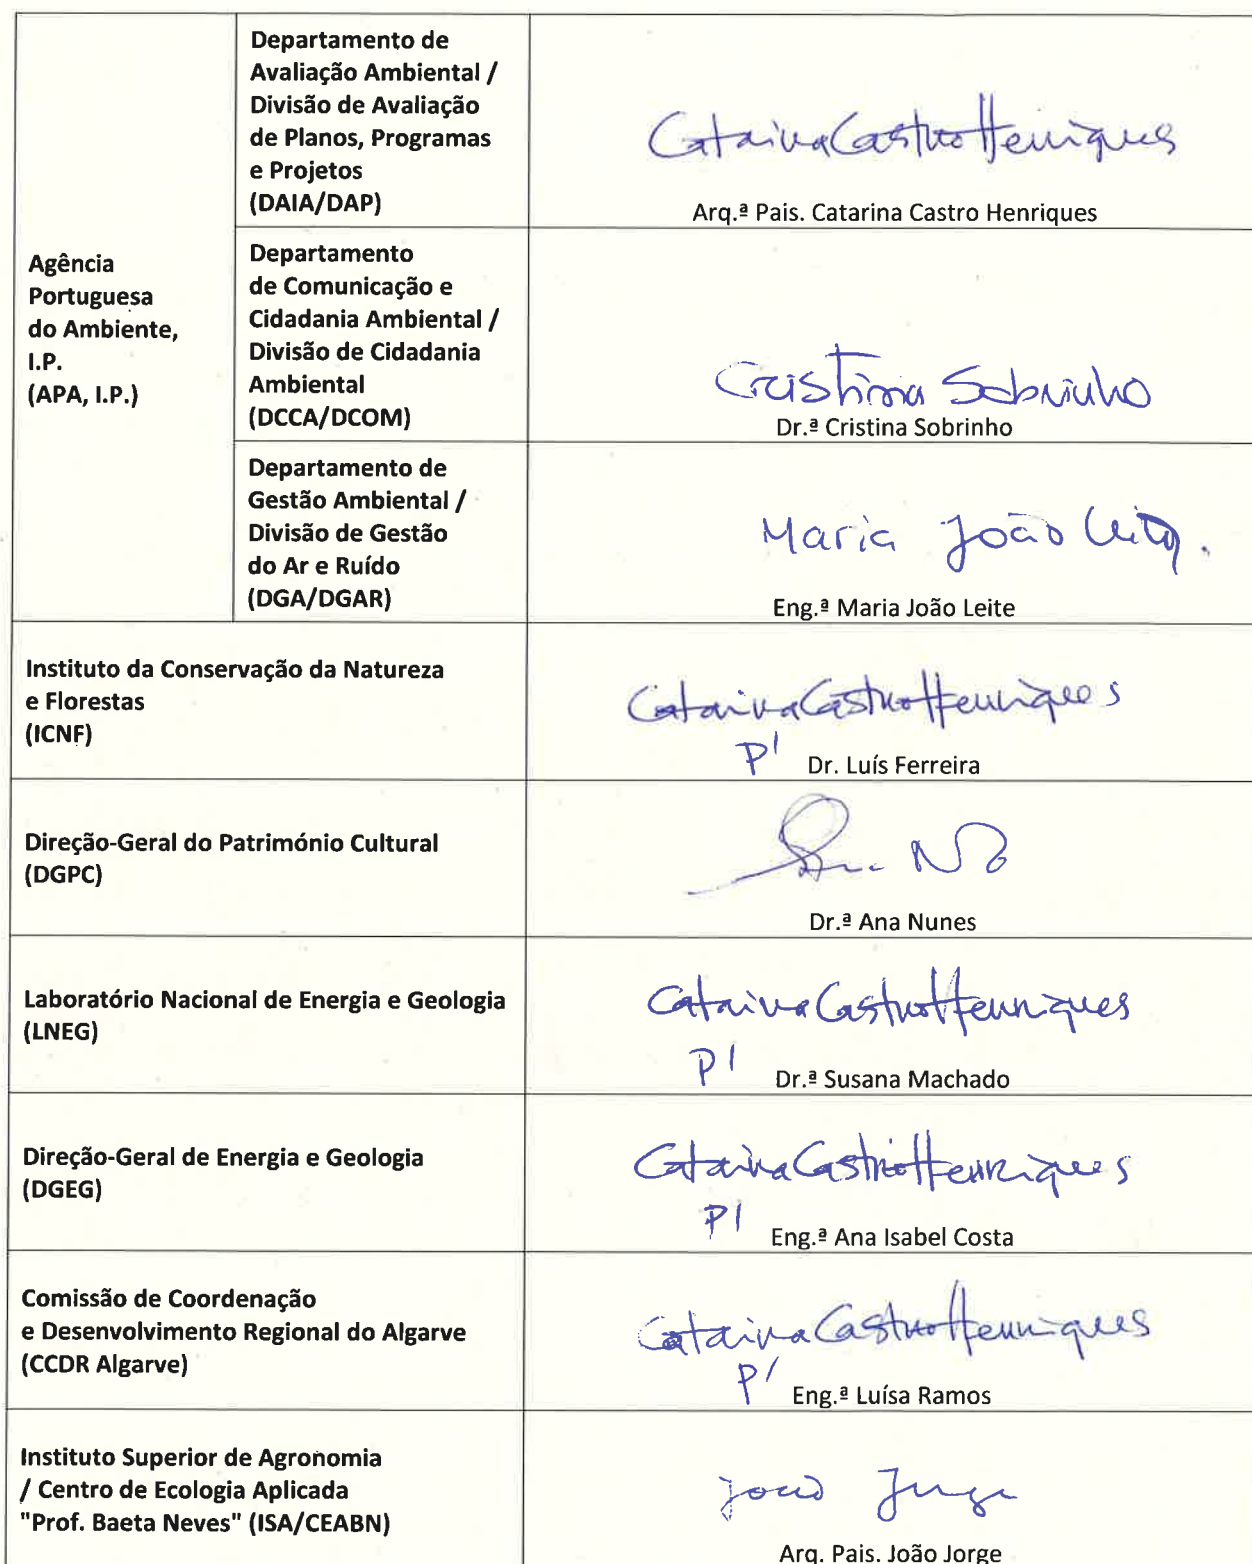 Agência
Portuguesa
do Ambiente,
I.P.
(APA, I.P.)
Departamento de
Avaliação Ambiental /
Divisão de Avaliação
de Planos, Programas
e Projetos
(DAIA/DAP)
Catarina Castro Henriques
Arq.ª Pais. Catarina Castro Henriques
Departamento
de Comunicação e
Cidadania Ambiental /
Divisão de Cidadania
Ambiental
(DCCA/DCOM)
Cristina Sobrinho
Dr.ª Cristina Sobrinho
Departamento de
Gestão Ambiental /
Divisão de Gestão
do Ar e Ruído
(DGA/DGAR)
Maria João Leite
Eng.ª Maria João Leite
Instituto da Conservação da Natureza
e Florestas
(ICNF)
Catarina Castro Henriques
P/ Dr. Luís Ferreira
Direção-Geral do Património Cultural
(DGPC)
Dr.ª Ana Nunes
Laboratório Nacional de Energia e Geologia
(LNEG)
Catarina Castro Henriques
P/ Dr.ª Susana Machado
Direção-Geral de Energia e Geologia
(DGEG)
Catarina Castro Henriques
P/ Eng.ª Ana Isabel Costa
Comissão de Coordenação
e Desenvolvimento Regional do Algarve
(CCDR Algarve)
Catarina Castro Henriques
P/ Eng.ª Luísa Ramos
Instituto Superior de Agronomia
/ Centro de Ecologia Aplicada
"Prof. Baeta Neves" (ISA/CEABN)
João Jorge
Arq. Pais. João Jorge